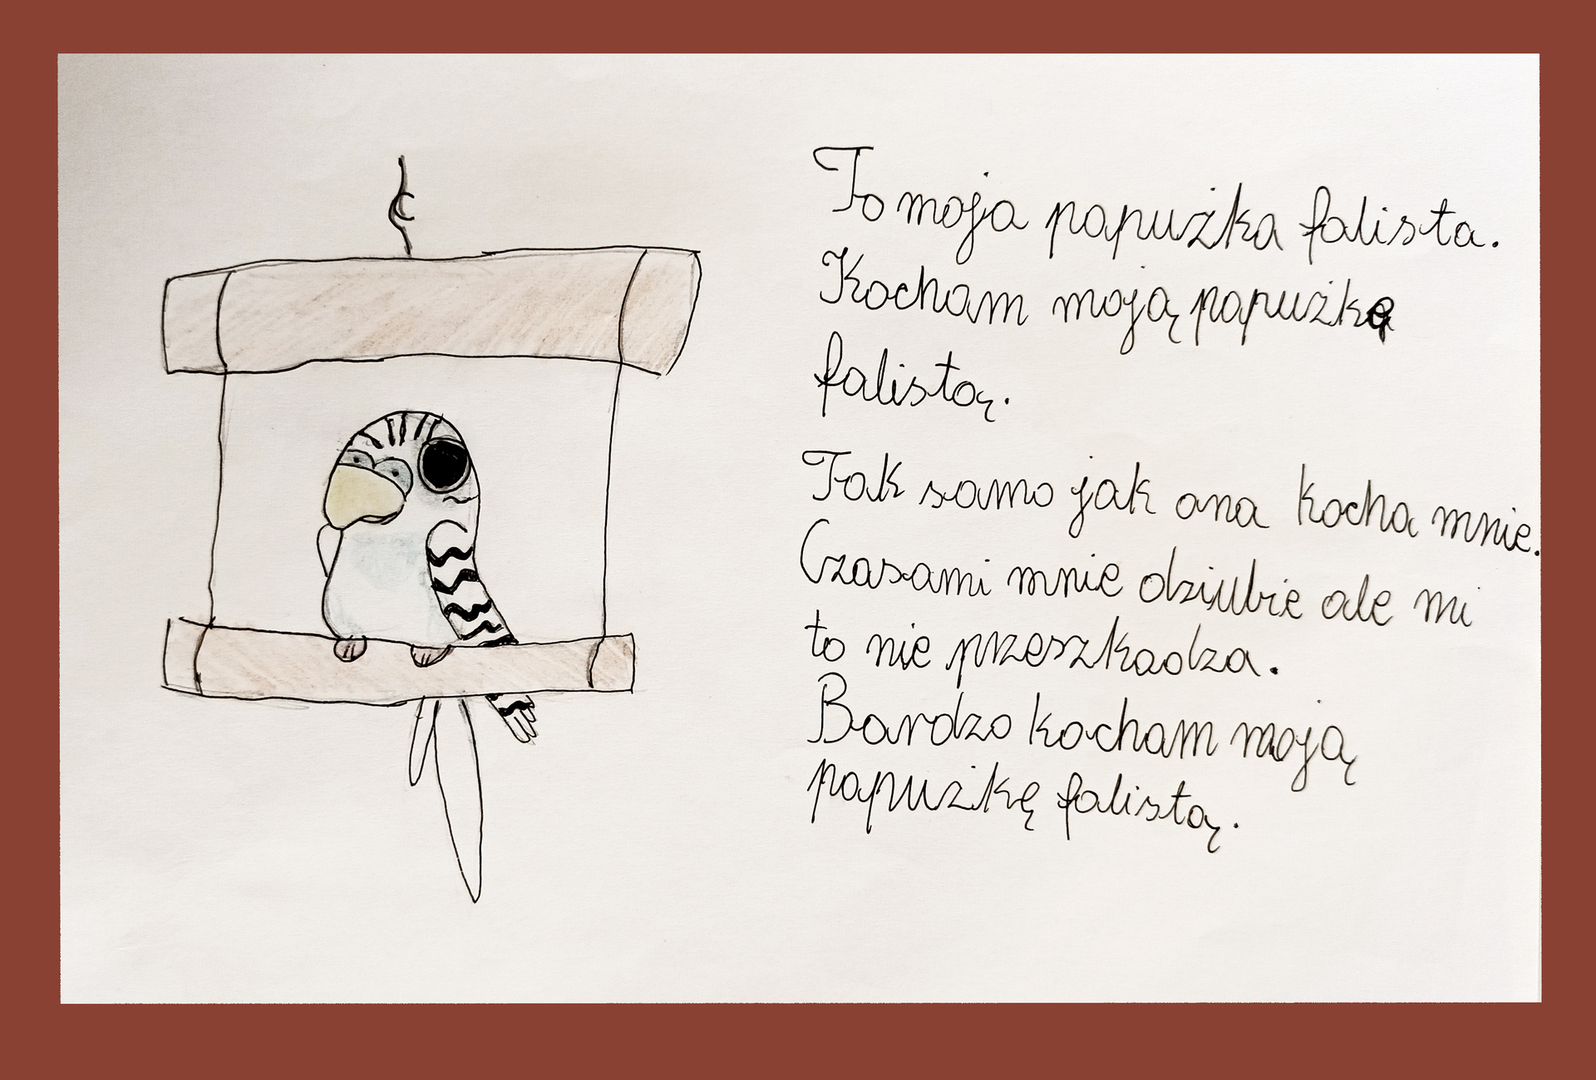 To moja papużka falista.
Kocham moją papużkę
falistą.
Tak samo jak ona kocha mnie.
Czasami mnie dziubie ale mi
to nie przeszkadza.
Bardzo kocham moją
papużkę falistą.